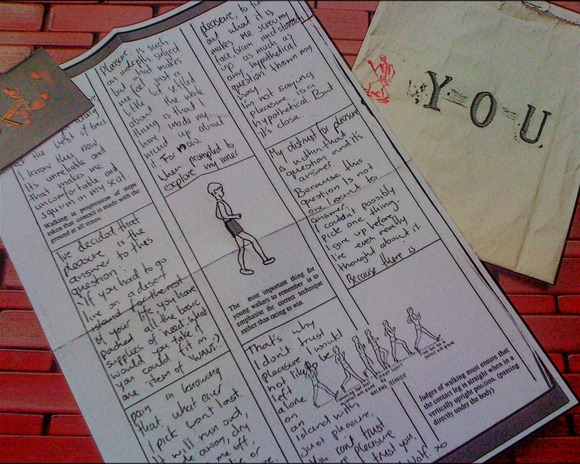 the best of times
I know they now
Its unreliable and
that makes me
uncomfortable and
squirm in my seat.
Walking is progression of steps
taken that contact is made with the
ground at all times.
I've decided that
pleasure is the
answer to this
question:
"If you had to go
live on a desert
island for the rest
of your life you have
packed all the basic
supplies of need. What
would you take if
you could fit in
one item of luxury?
pain in knowing
that what ever
I pick won't last
It will run out,
me off,
pleasure is such
an indepth subject
but what makes
me feel just a
bit settled
about the whole
thing is that I
have made my
mind up about
it. For now.
then prompted to
explore my time!
The most important thing for
young walkers to remember is to
emphasise the correct technique
rather than racing to win.
That's why
I don't trust
pleasure I would
not like to be
left
alone
on an
island with
Just pleasure.
You can't trust
pleasure
trust you,
xo
pleasure, to
out what it is
makes me screw my
face, scan and
up as much as
any hypothetical
question thrown my
way.
I'm not saying
pleasure is a
hypothetical But
it's close.
My distrust for pleasure
is within that
question and it's
answer.
Because this
question is not
one I want to
answer, I
couldn't possibly
pick one thing.
I give up before
I've even really
thought about it.
Because there is
Judges of walking must ensure that
the contact leg is straight when in a
vertically upright position. (passing
directly under the body)
Y=O=U